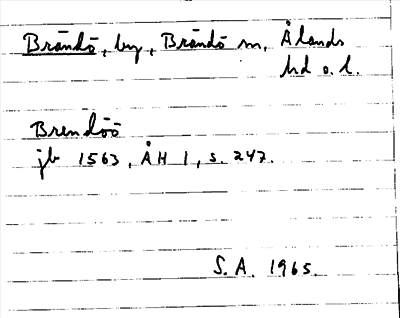 Brändö, by, Brändö sn, Ålands
hd o. l.
Brendöö
jb 1563, ÅH 1, s. 247.
S. A. 1965.